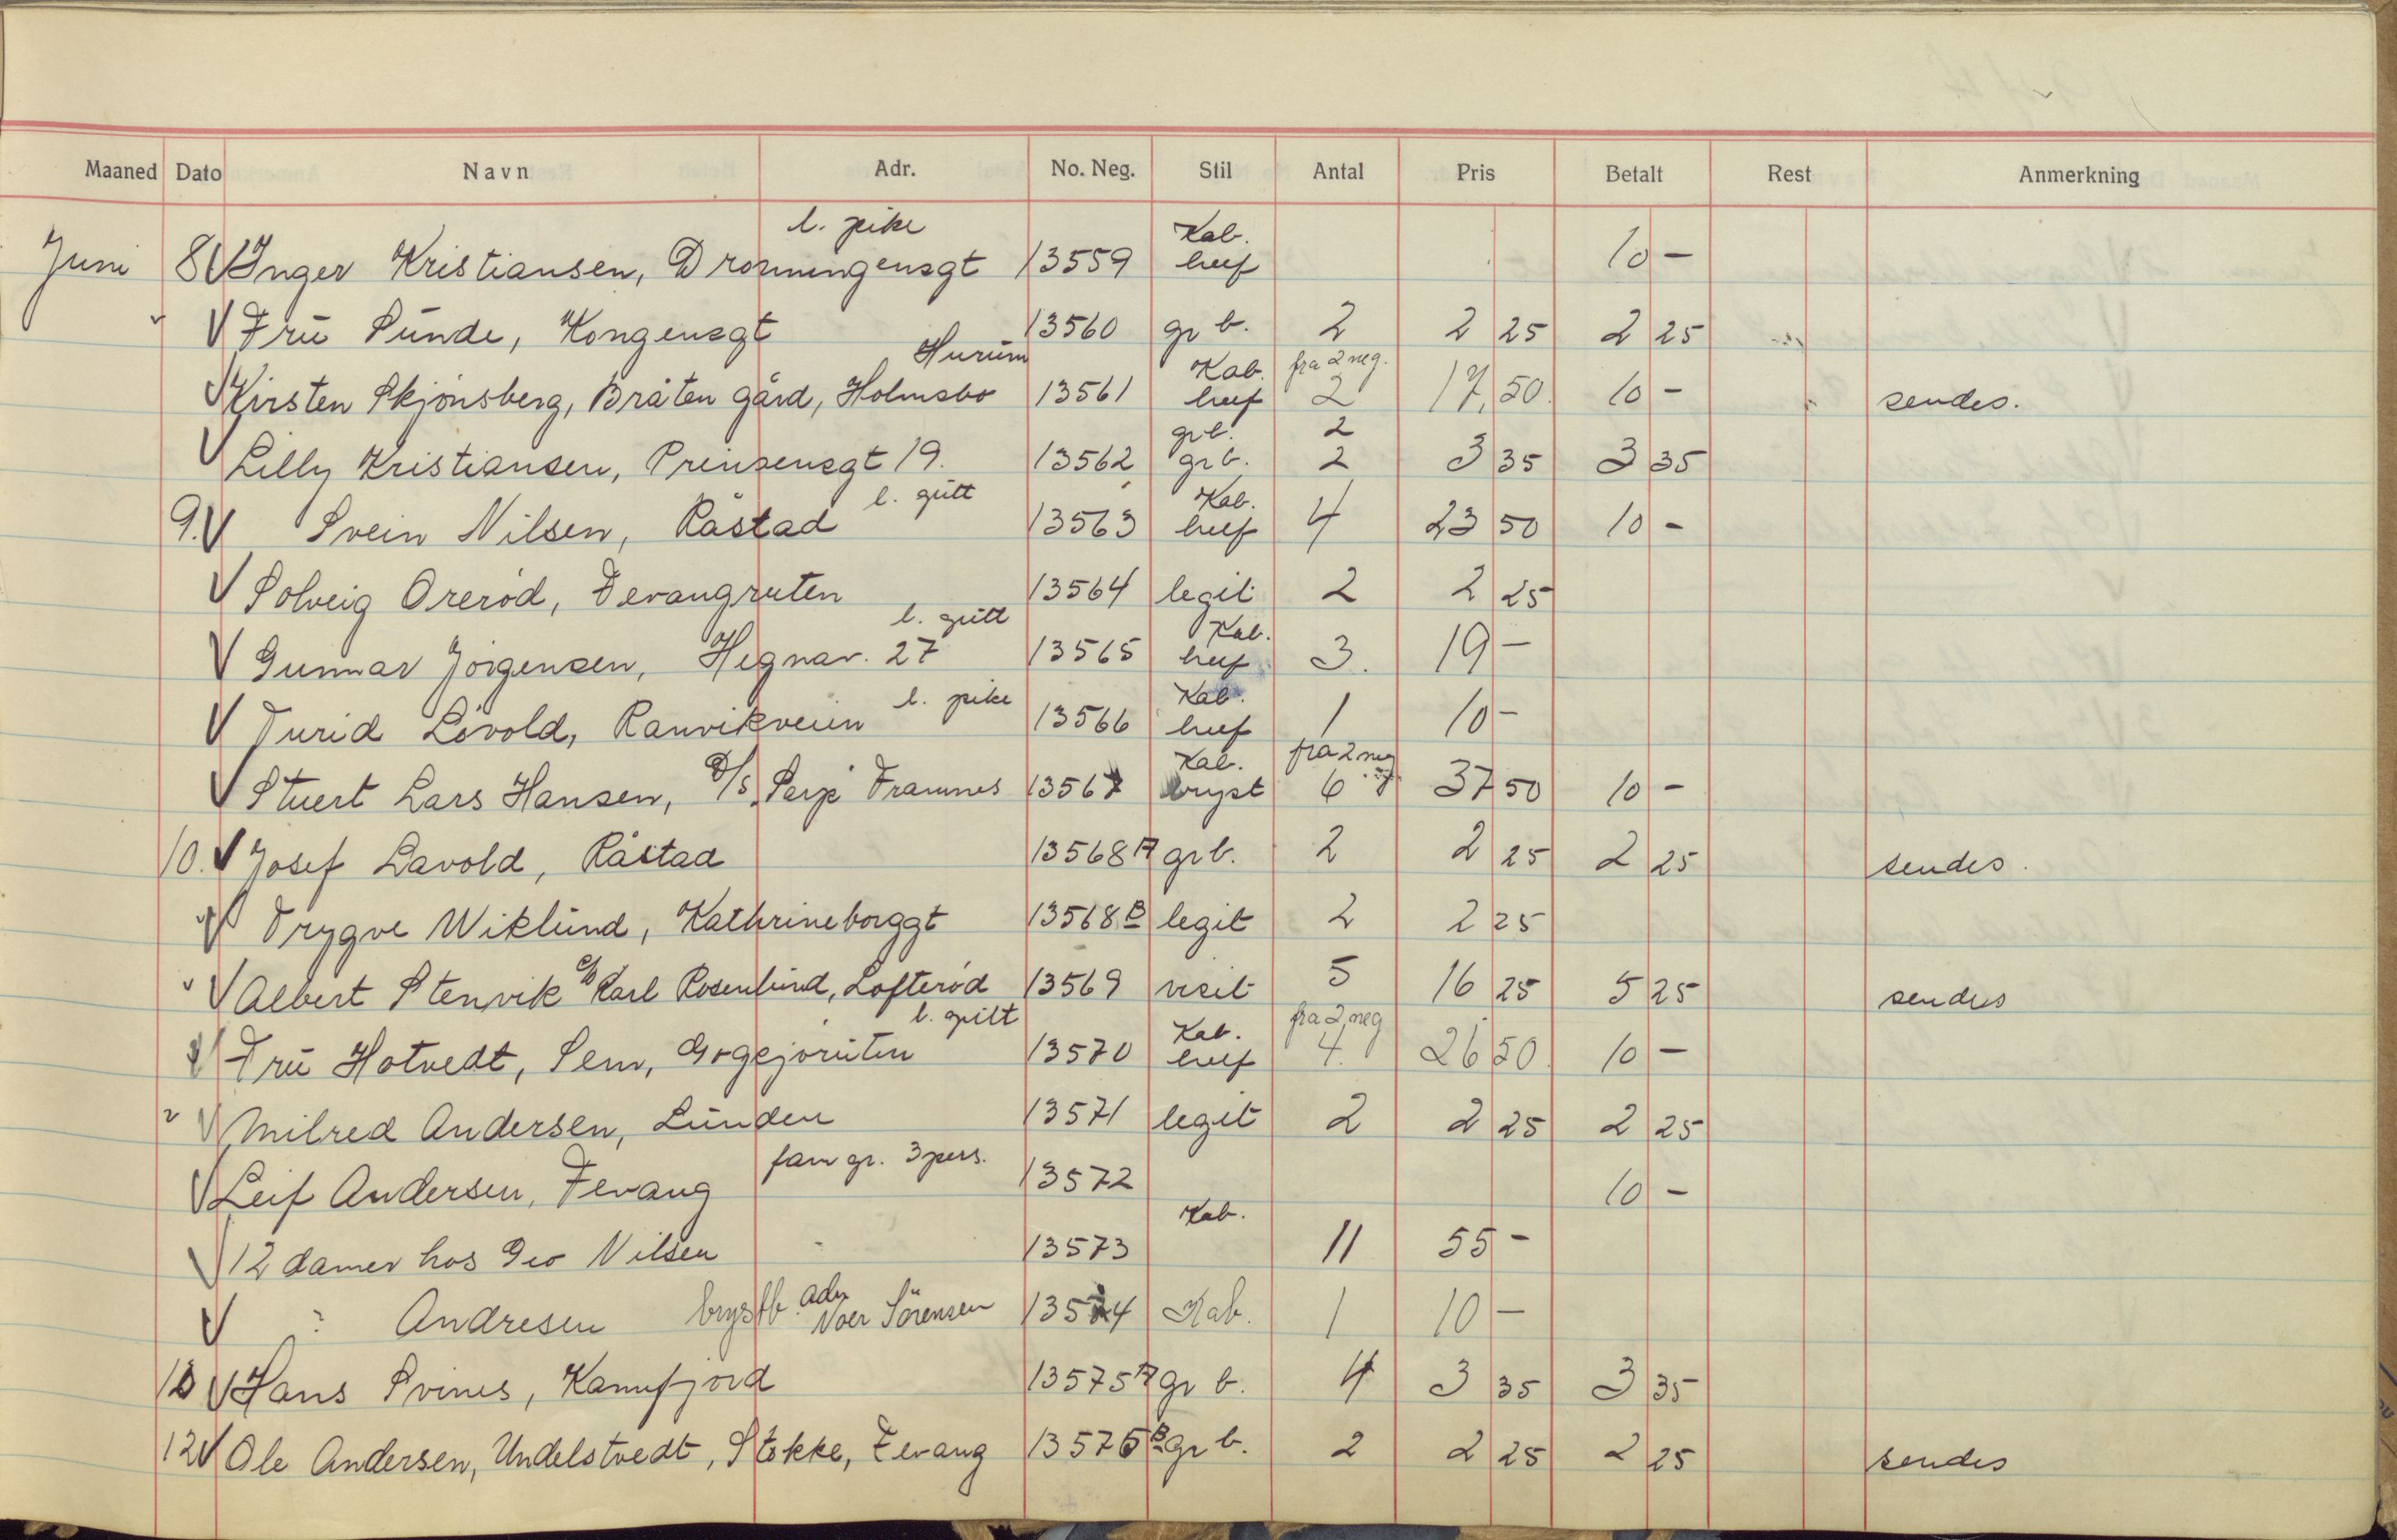 Maaned Dato Navn Adr. No. Neg. Stil Antal Pris Betalt Rest Anmerkning
l. pike Kab.
Juni 8 V Inger Kristiansen, Dronningensgt 13559 huf 10 -
" V Frü Sünde, Kongensgt 13560 gr b. 2 2 25 2 25
Hurüm Kab. fra 2 neg.
V Kirsten Skjönsberg, Bråten gård, Holmsbo 13561 huf 2 17,50 10 - sendes.
gr b. 2
V Lilly Kristiansen, Prinsensgt 19. 13562 gr b. 2 3 35 3 35
l. gütt Kab.
9. V Svein Nilsen, Råstad 13563 huf 4 23 50 10 -
V Solveig Oreröd, Fevangruten 13564 legit 2 2 25
l. gütt Kab.
V Gunnar Jörgensen, Hegnav. 27 13565 huf 3. 19 -
l. pike Kab.
V Turid Lövold, Ranvikveien 13566 huf 1 10 -
Kab. fra 2 neg
V Stuert Lars Hansen, D/S. Framnes 13567 bryst 6 37 50 10 -
10. V Josef Lavold, Råstad 13568 A gr b. 2 2 25 2 25 sendes.
V Trygve Wiklünd, Kathrineborggt 13568 B legit 2 2 25
" V Albert Stenvik c/o Karl Rosenlünd, Lofteröd 13569 visit 5 16 25 5 25 sendes
l. gütt Kab. fra 2 neg
V Frü Hotvedt, Sem, 13570 huf 4. 26 50 10 -
" V Milred Andersen, Lünden 13571 legit 2 2 25 2 25
fam gr. 3 pers.
V Leif Andersen, Fevang 13572 10 -
Kab.
V 12 damer hos Geo Nilsen 13573 11 55 -
adr
V " Andresen brystb. Noer Sörensen 13574 Kab. 1 10 -
V Hans Svines, Kamfjord 13575 A gr b. 4 3 35 3 35
12 V Ole Andersen, Undelstvedt, Stokke, Fevang 13575 B gr b. 2 2 25 2 25 sendes